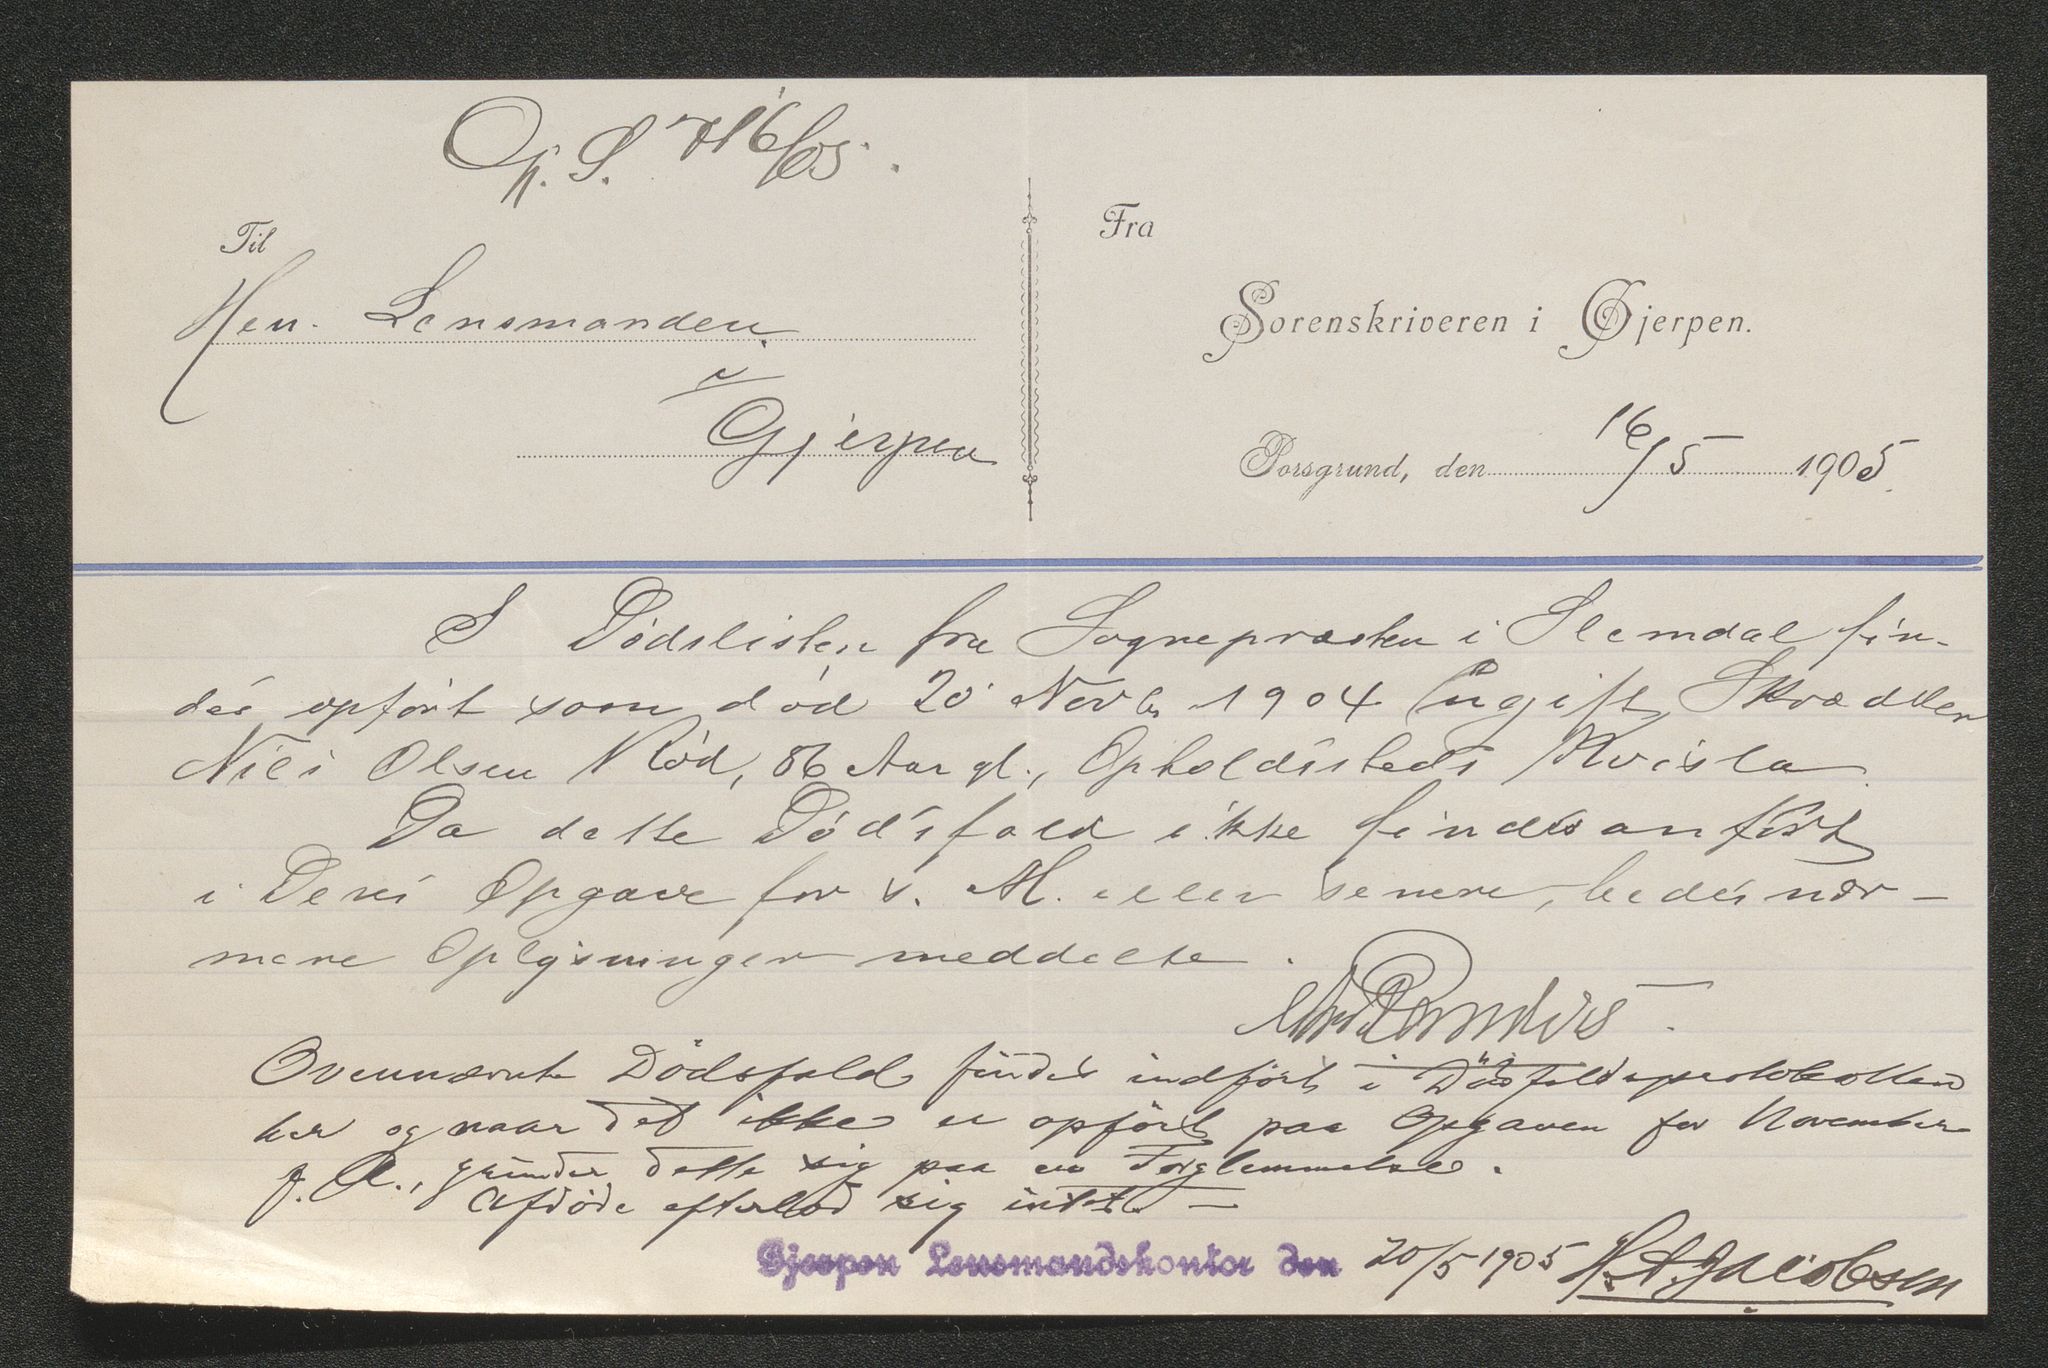 S. 716/05.
Til
Herr. Lensmanden
i
Gjerpen
Fra
Sorenskriveren i Gjerpen.
Porsgrund, den 16/5 1905.
I Dødslisten fra Sognepræsten i Slemdal fin-
des opført som død 20 Novbr 1904 Ungift Skrædder
Nils Olsen Rød, 86 Aar gl., Opholdssteds Kvisla
Da dette Dødsfald ikke findes anført
i Deres Opgave for s. M. eller senere, bedes nær-
mere Oplysninger meddelte.
Ovennævnte Dödsfald findes indfjört i Dödsfaldsprotokollen
her og naar det ikke er opfört paa Opgaven for November
f. A., grunder dette sig paa en Forglemmelse.
Afdöde efterlod sig intet. —
Gjerpen Lensmandskontor den 20/5 1905 H. A. Jacobsen